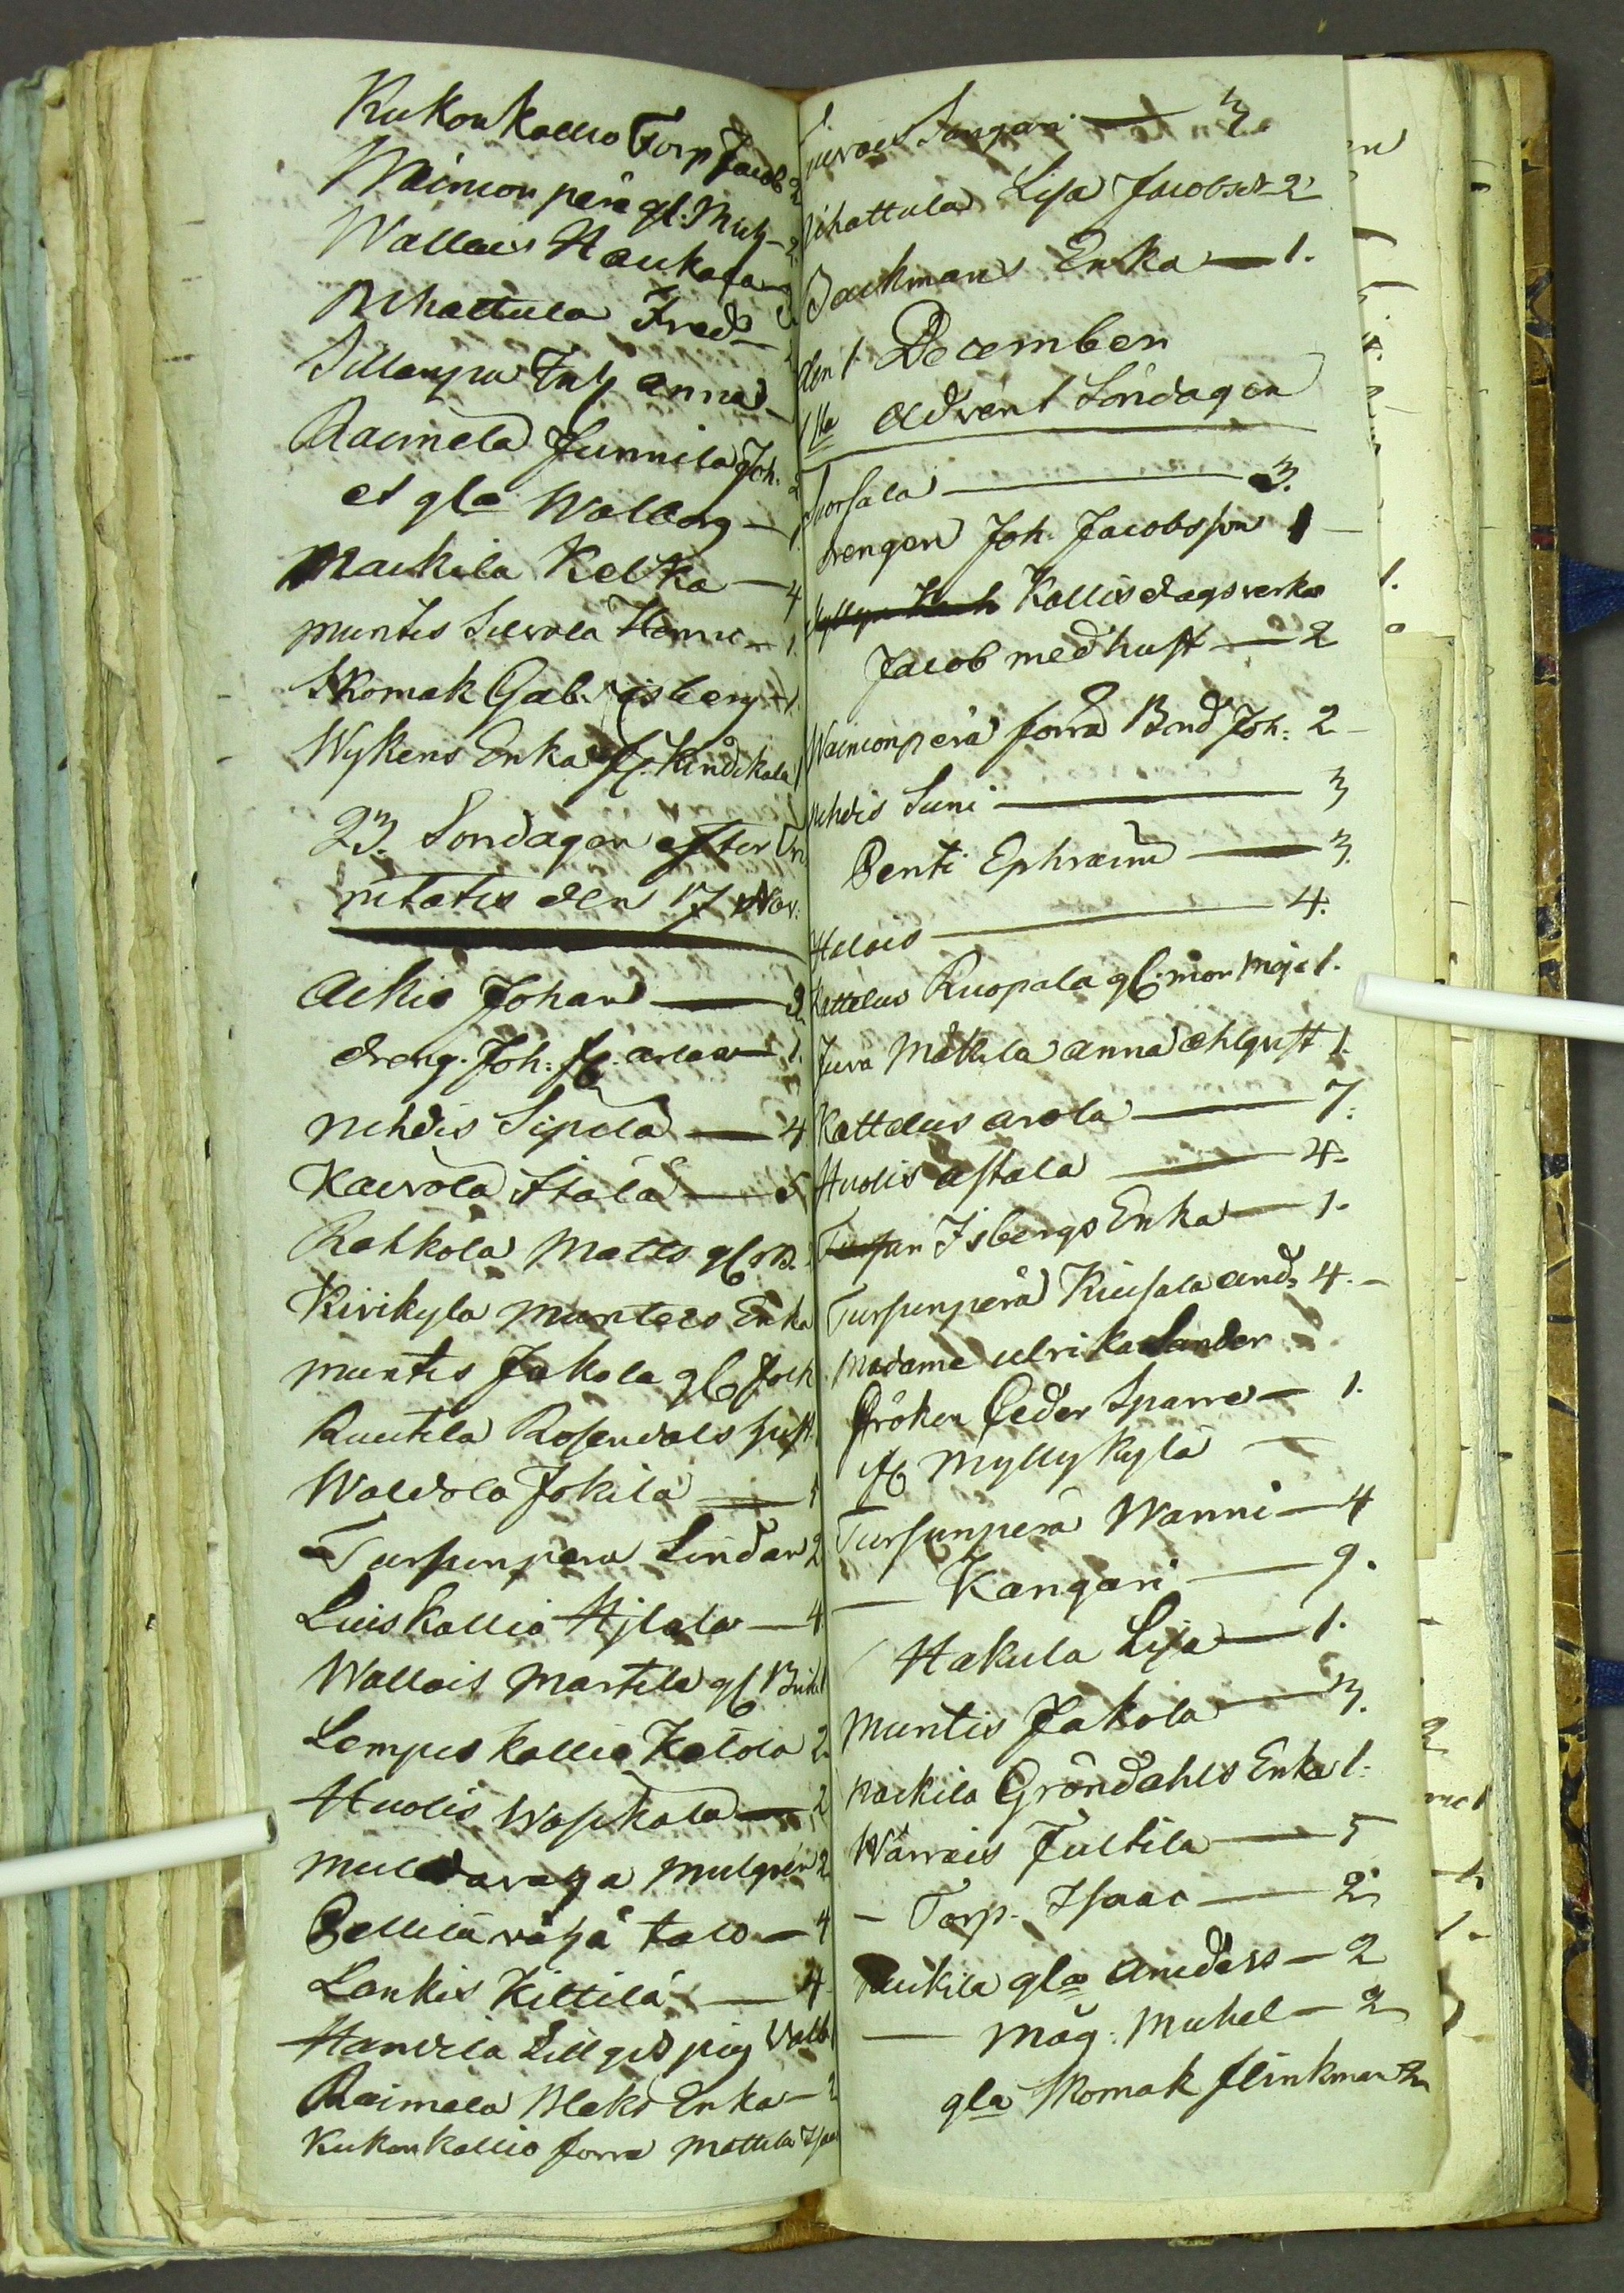 Kukonkallio Torp Jacob 2
Wäimonperä gl. Mich - 2
Wallais Haukaja
Nihattula Fred -
Sillanpä Inh anna -
Raimela Junnila Joh. 2
et gla Walborg - 1.
Markila Kelka - 4
muntis Siurola Henric - 1.
Skomak Gab. Isberg - 1.
Wykens Enka fr. Kindikala
23. Söndagen efter Tri
nitatis den 17 Nov:
Ackis Johan - 2
dreng. Joh: fr. arla - 1.
nihdis Sipilä - 4
Kaurola Ståla - 5
Rahkola Matts gl. B.
Kirikyla munters Enka
muntis Jakola gl. Joh
Ruutila Rosendals hust.
Waldola Jokila - 1
Tursunpera Lindar 2
Luiskallio Hjlala - 4
Wallais Martila gl Brita
Lempis kallio Katola 2.
Huolis Wosikala - 2
mulgren 2
Pellilä väha talo - 4
Lankis Kiltilä - 4
Hannila Lillgrd pig Valb
Raimela Bleks Enka - 2
Kukonkallio forra Mattila Isaac
Sangari - 3.
Nihattula Lisa Jacobsd - 2
Backmans Enka - 1.
den 1 December
1sta advent Söndagen
Suorsala - 3.
drengen Joh. Jacobsson 1 -
Kallis dagsverks
Jacob med hust - 2
Wäimonperä forra Bnd Joh: 2 -
nihdis Suni - 3
Penti Ephraim - 3.
Halois - 4.
Kattelus Ruopala gl. mor Maja 1.
Juva Måttila anna ahlqvist 1.
Kattelus arola - 7.
Huolis astala - 4.
Isbergs Enka - 1.
Tursunperä Kiusala and. 4. -
Madame ulrika Sander
Fröken Ceder Sparre - 1.
fr Myllykylä -
Tursunperä Wanni - 4
- Kangari - 9.
Hakula Lisa - 1.
Muntis Jakola - 3.
Rackila Gröndahls Enka 1.
Wärrais Jultila - 5
- Torp. Isaac - 2
Rackila gla anders - 2
- Måg: Michel - 2
gla Skomak flinkman 2